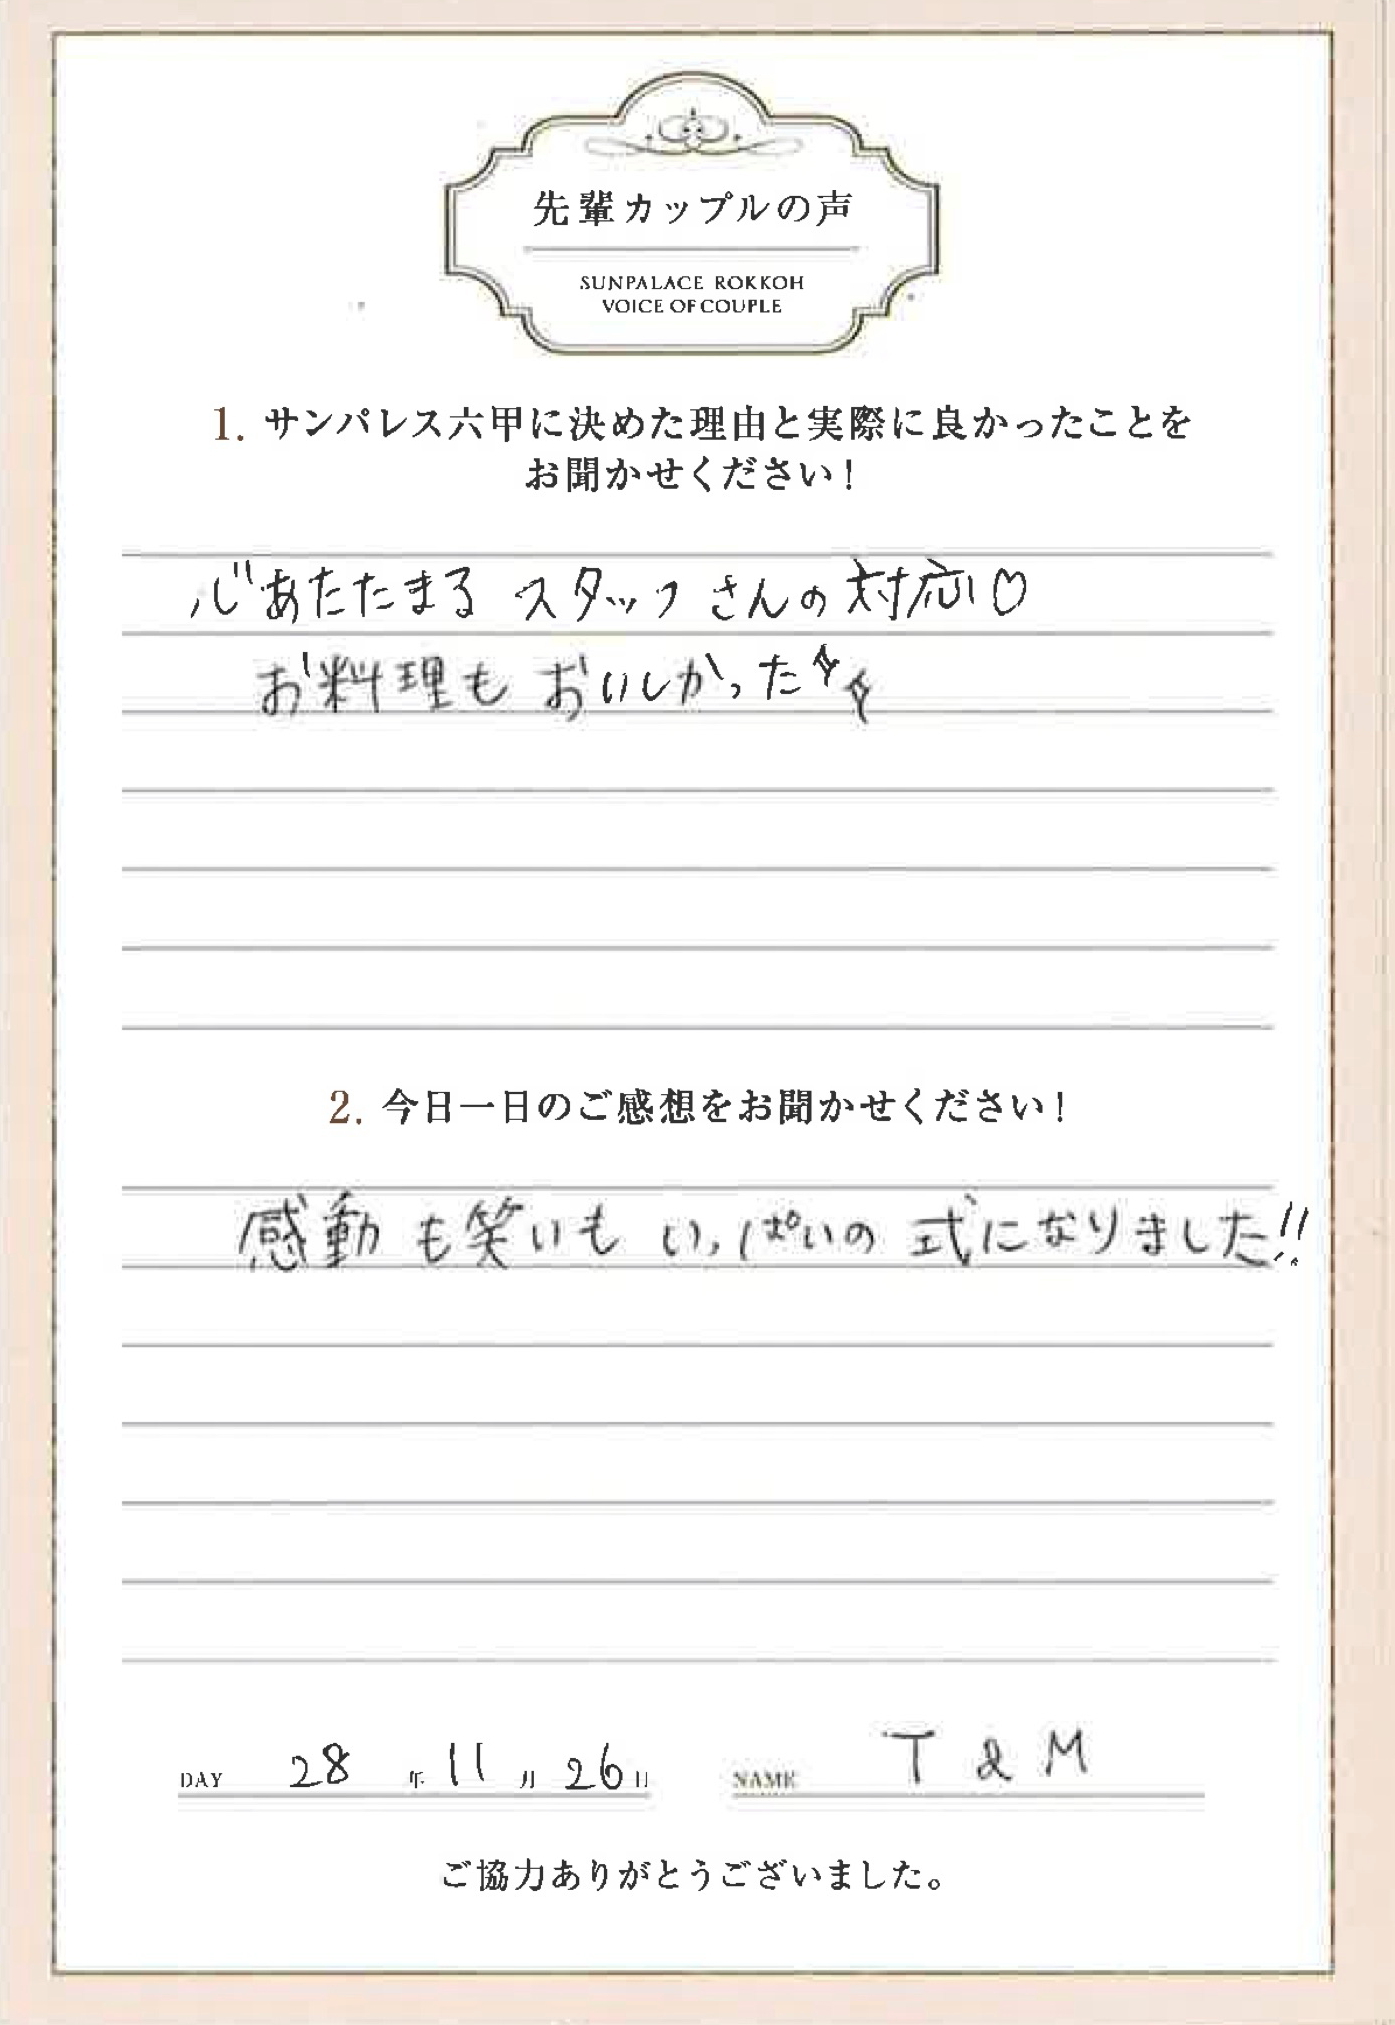 先輩カップルの声
SUNPALACE ROKKOH
VOICE OF COUPLE
1. サンパレス六甲に決めた理由と実際に良かったことを
お聞かせください!
心あたたまる スタッフさんの対応♡
お料理も おいしかった
2. 今日一日のご感想をお聞かせください!
感動も笑いも いっぱいの 式になりました!!
DAY 28 年 11 月 26 日 NAME T & M
ご協力ありがとうございました。